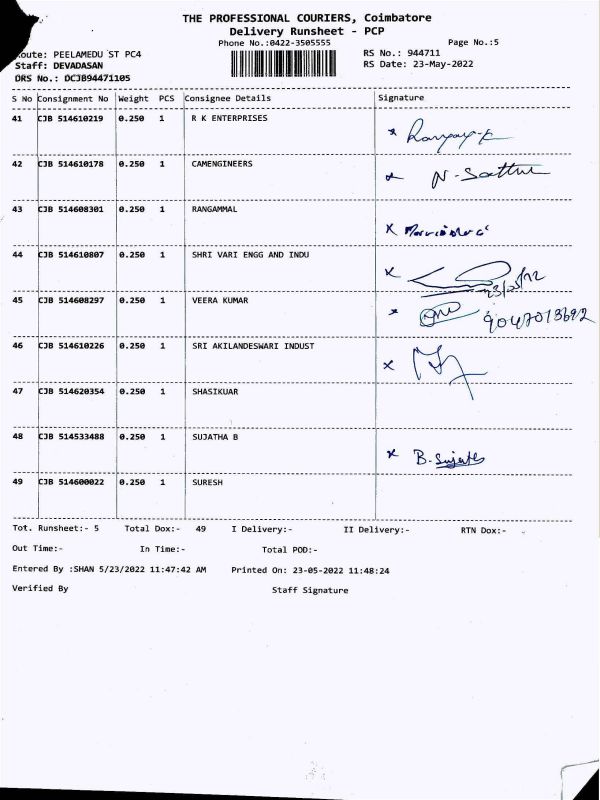 THE PROFESSIONAL COURIERS, Coimbatore
Delivery Runsheet - PCP
Phone No.:0422-3505555 Page No.:5
oute: PEELAMEDU ST PC4 RS No.: 944711
Staff: DEVADASAN RS Date: 23-May-2022
DRS No.: DCJB94471105
S No Consignment No Weight PCS Consignee Details Signature
41 CJB 514610219 0.250 1 R K ENTERPRISES
42 CJB 514610178 0.250 1 CAMENGINEERS N-Sathu
43 CJB 514608301 0.250 1 RANGAMMAL
44 CJB 514610807 0.250 1 SHRI VARI ENGG AND INDU
23/05/22
45 CJB 514608297 0.250 1 VEERA KUMAR 9047013692
46 CJB 514610226 0.250 1 SRI AKILANDESWARI INDUST
47 CJB 514620354 0.250 1 SHASIKUAR
48 CJB 514533488 0.250 1 SUJATHA B B. Sujatha
49 CJB 514600022 0.250 1 SURESH
Tot. Runsheet:- 5 Total Dox:- 49 I Delivery:- II Delivery:- RTN Dox:-
Out Time:- In Time:- Total POD:-
Entered By :SHAN 5/23/2022 11:47:42 AM Printed On: 23-05-2022 11:48:24
Verified By Staff Signature